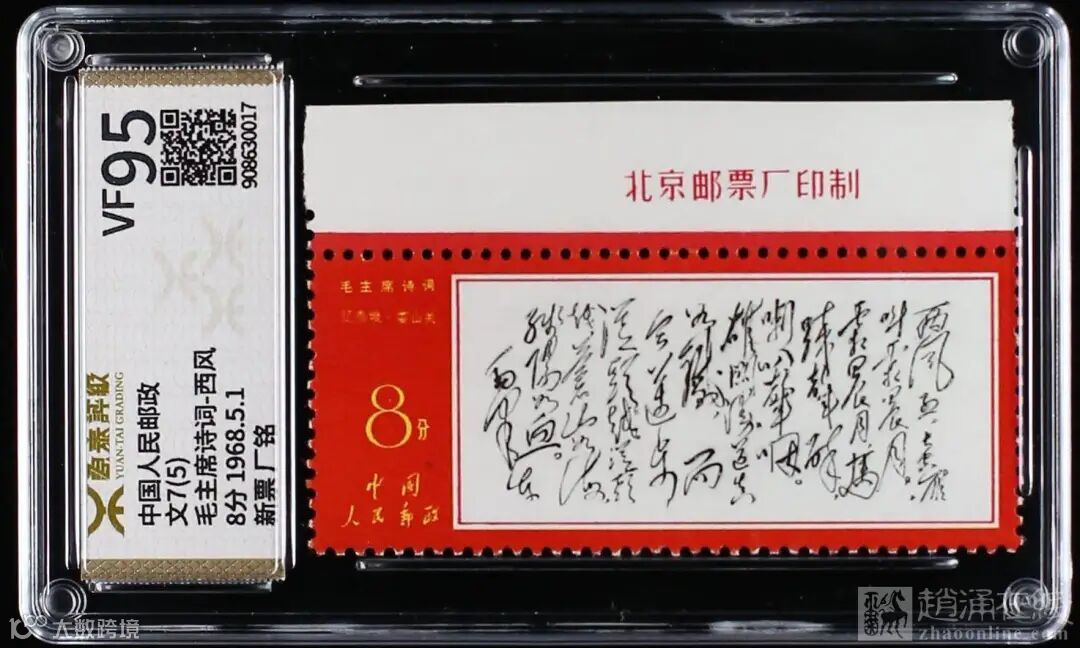 VF95
908630017
源泰評級
YUAN·TAI GRADING
中国人民邮政
文7(5)
毛主席诗词-西风
8分 1968.5.1
新票 厂铭
北京邮票厂印制
毛主席诗词
忆秦娥·娄山关
8分
中国
人民邮政
西风烈长空雁
叫霜晨月
霜晨月馬
蹄聲碎
喇叭聲咽
雄关漫道真
如鐵而
今迈步
从头越从头
越苍山如海
残阳如血
毛泽东
大数跨境
趙涌在线
zhaoonline.com